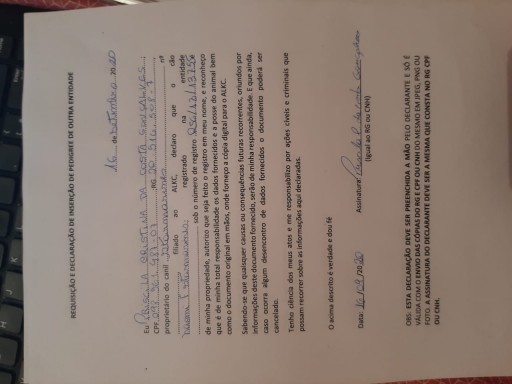 REQUISIÇÃO E DECLARAÇÃO DE INSERÇÃO DE PEDIGREE DE OUTRA ENTIDADE
16 de setembro 20 20
Eu Priscila Cristina da Costa Gonçalves,
CPF RG
proprietário do canil nº
filiado ao ALKC, declaro que o cão
registrado na entidade
sob o número de registro
de minha propriedade, autorizo que seja feito o registro em meu nome, e reconheço
que é de minha total responsabilidade os dados fornecidos e a posse do animal bem
como o documento original em mãos, onde forneço a cópia digital para o ALKC.
Sabendo-se que quaisquer causas ou consequências futuras recorrentes, oriundos por
informações deste documento fornecido, serão de minha responsabilidade. E que ainda,
caso ocorra algum desencontro de dados fornecidos o documento poderá ser
cancelado.
Tenho ciência dos meus atos e me responsabilizo por ações cíveis e criminais que
possam recorrer sobre as informações aqui declaradas.
O acima descrito é verdade e dou fé
Data: 16/09/2020 Assinatura:
(igual ao RG ou CNH)
OBS: ESTA DECLARAÇÃO DEVE SER PREENCHIDA A MÃO PELO DECLARANTE E SÓ É
VÁLIDA COM O ENVIO DAS COPIAS DO RG E CPF OU CNH DO MESMO EM JPEG, PNG OU
FOTO. A ASSINATURA DO DECLARANTE DEVE SER A MESMA QUE CONSTA NO RG CPF
OU CNH.